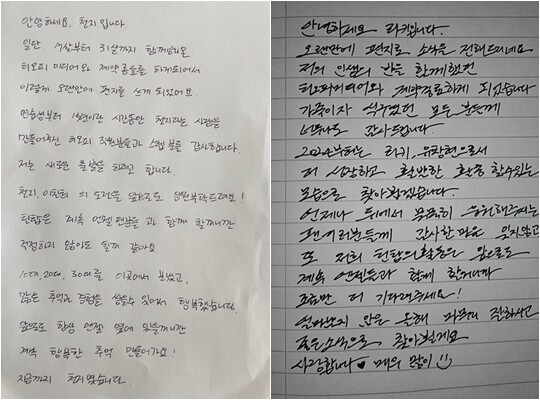 안녕하세요. 천지입니다.
일단 17살부터 31살까지 함께해온
티오피 미디어와 계약종료를 하게되어서
이렇게 오랜만에 편지를 쓰게 되었어요.
연습생부터 15년이란 시간동안 천지라는 사람을
만들어주신 티오피 직원분들과 스탭분들 감사합니다.
저는 새로운 출발을 하려고 합니다.
천지, 이찬희 의 도전을 앞으로도 응원부탁드려요!
틴탑은 계속 엔젤 팬분들 과 함께 할꺼니깐
걱정하지 않아도 될꺼 같아요
10대, 20대, 30대를 이곳에서 보냈고,
많은 추억과 경험을 쌓을수 있어서 행복했습니다.
앞으로도 항상 엔젤 옆에 있을꺼니깐
계속 행복한 추억 만들어가요!
지금까지 천지였습니다.
안녕하세요 리키입니다.
오랜만에 편지로 소식을 전해드리네요
저의 인생의 반을 함께했던
티오피미디어와 계약종료하게 되었습니다
가족이자 식구였던 모든 분들께
너무나도 감사드립니다
2024년부터는 리키, 유창현으로서
더 성장하고 활발한 활동 할수있는
모습으로 찾아뵙겠습니다.
언제나 뒤에서 묵묵히 응원해주시는
팬여러분들께 감사한마음 잊지않고
또 저희 틴탑의활동은 앞으로도
계속 엔젤들과 함께 할거니까
조금만 더 기다려주세요!
얼마남지 않은 올해 마무리 잘하시고
좋은소식으로 찾아뵐게요
사랑합니다♥ 매우 많이